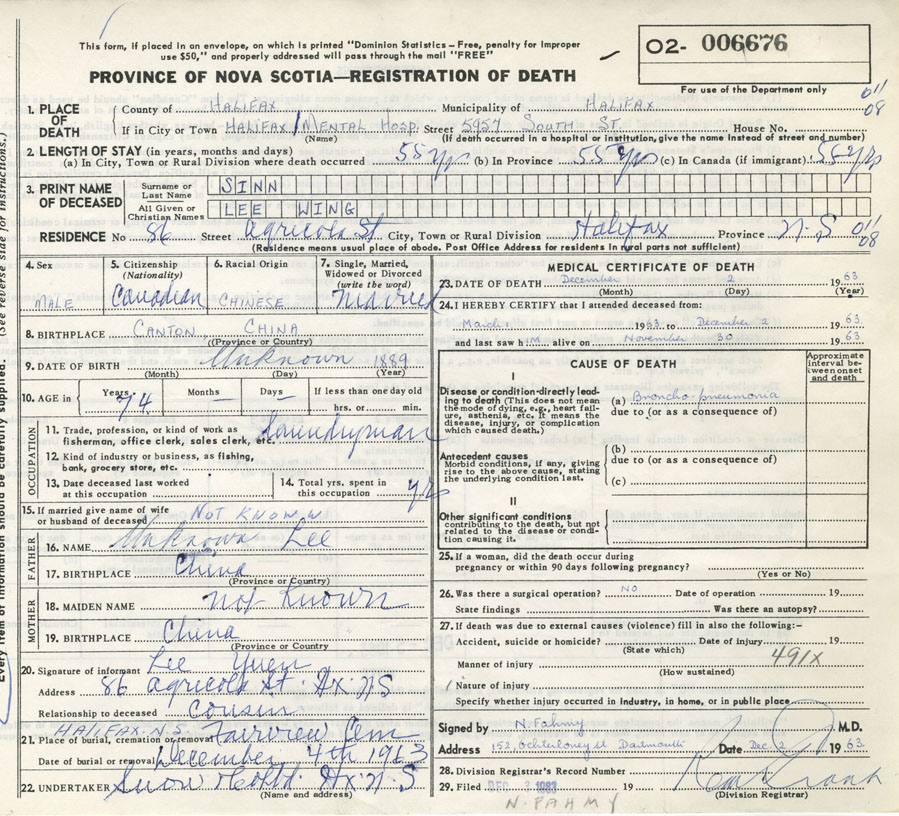 This form, if placed in an envelope, on which is printed "Dominion Statistics – Free, penalty for improper
use $50," and properly addressed will pass through the mail "FREE"
O2- 006676
PROVINCE OF NOVA SCOTIA—REGISTRATION OF DEATH
For use of the Department only
011
08
1. PLACE OF DEATH
County of HALIFAX Municipality of HALIFAX
If in City or Town HALIFAX / MENTAL HOSP. Street 5957 SOUTH ST. House No.
(Name) (If death occurred in a hospital or institution, give the name instead of street and number)
2. LENGTH OF STAY (in years, months and days)
(a) In City, Town or Rural Division where death occurred 55 yrs (b) In Province 55 yrs (c) In Canada (if immigrant) 55 yrs
3. PRINT NAME OF DECEASED
Surname or Last Name SINN
All Given or Christian Names LEE WING
RESIDENCE No 86 Street Agricola St City, Town or Rural Division Halifax Province N.S 011
08
(Residence means usual place of abode. Post Office Address for residents in rural parts not sufficient)
4. Sex MALE
5. Citizenship (Nationality) Canadian
6. Racial Origin CHINESE
7. Single, Married, Widowed or Divorced (write the word) Married
8. BIRTHPLACE CANTON CHINA
(Province or Country)
9. DATE OF BIRTH Unknown 1889
(Month) (Day) (Year)
10. AGE in Years 74 Months – Days – If less than one day old
hrs. or min.
OCCUPATION
11. Trade, profession, or kind of work as
fisherman, office clerk, sales clerk, etc. Laundryman
12. Kind of industry or business, as fishing,
bank, grocery store, etc.
13. Date deceased last worked
at this occupation
14. Total yrs. spent in
this occupation yrs
15. If married give name of wife
or husband of deceased NOT KNOWN
FATHER
16. NAME Unknown Lee
17. BIRTHPLACE China
(Province or Country)
MOTHER
18. MAIDEN NAME not known
19. BIRTHPLACE China
(Province or Country)
20. Signature of informant Lee Yuen
Address 86 Agricola St. Hx. N.S
Relationship to deceased Cousin
HALIFAX N.S.
21. Place of burial, cremation or removal Fairview Cem
Date of burial or removal December 4th 1963
22. UNDERTAKER Snow Hx. N.S
(Name and address)
MEDICAL CERTIFICATE OF DEATH
23. DATE OF DEATH December 2 1963
(Month) (Day) (Year)
24. I HEREBY CERTIFY that I attended deceased from:
March 1 1963 to December 2 1963
and last saw him alive on November 30 1963
CAUSE OF DEATH
Approximate
interval be-
tween onset
and death
I
Disease or condition directly lead-
ing to death (This does not mean
the mode of dying, e.g., heart fail-
ure, asthenia, etc. It means the
disease, injury, or complication
which caused death.)
(a) Broncho-pneumonia
due to (or as a consequence of)
Antecedent causes
Morbid conditions, if any, giving
rise to the above cause, stating
the underlying condition last.
(b)
due to (or as a consequence of)
(c)
II
Other significant conditions
contributing to the death, but not
related to the disease or condi-
tion causing it.
25. If a woman, did the death occur during
pregnancy or within 90 days following pregnancy?
(Yes or No)
26. Was there a surgical operation? NO Date of operation 19
State findings Was there an autopsy?
27. If death was due to external causes (violence) fill in also the following:–
Accident, suicide or homicide? Date of injury 19
(State which)
Manner of injury 491X
(How sustained)
Nature of injury
Specify whether injury occurred in industry, in home, or in public place
Signed by N. Fahmy M.D.
Address 152, Ochterloney St Dartmouth Date Dec. 2 1963
28. Division Registrar's Record Number
29. Filed DEC 3 1963 19
(Division Registrar)
N. FAHMY
Every item of information should be carefully supplied. (See reverse side for instructions.)